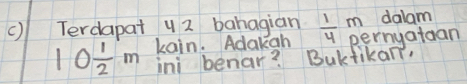 c) Terdapat 42 bahagian 1/4 m dalam
10 1/2 m kain. Adakah pernyataan
ini benar? Buktikan.